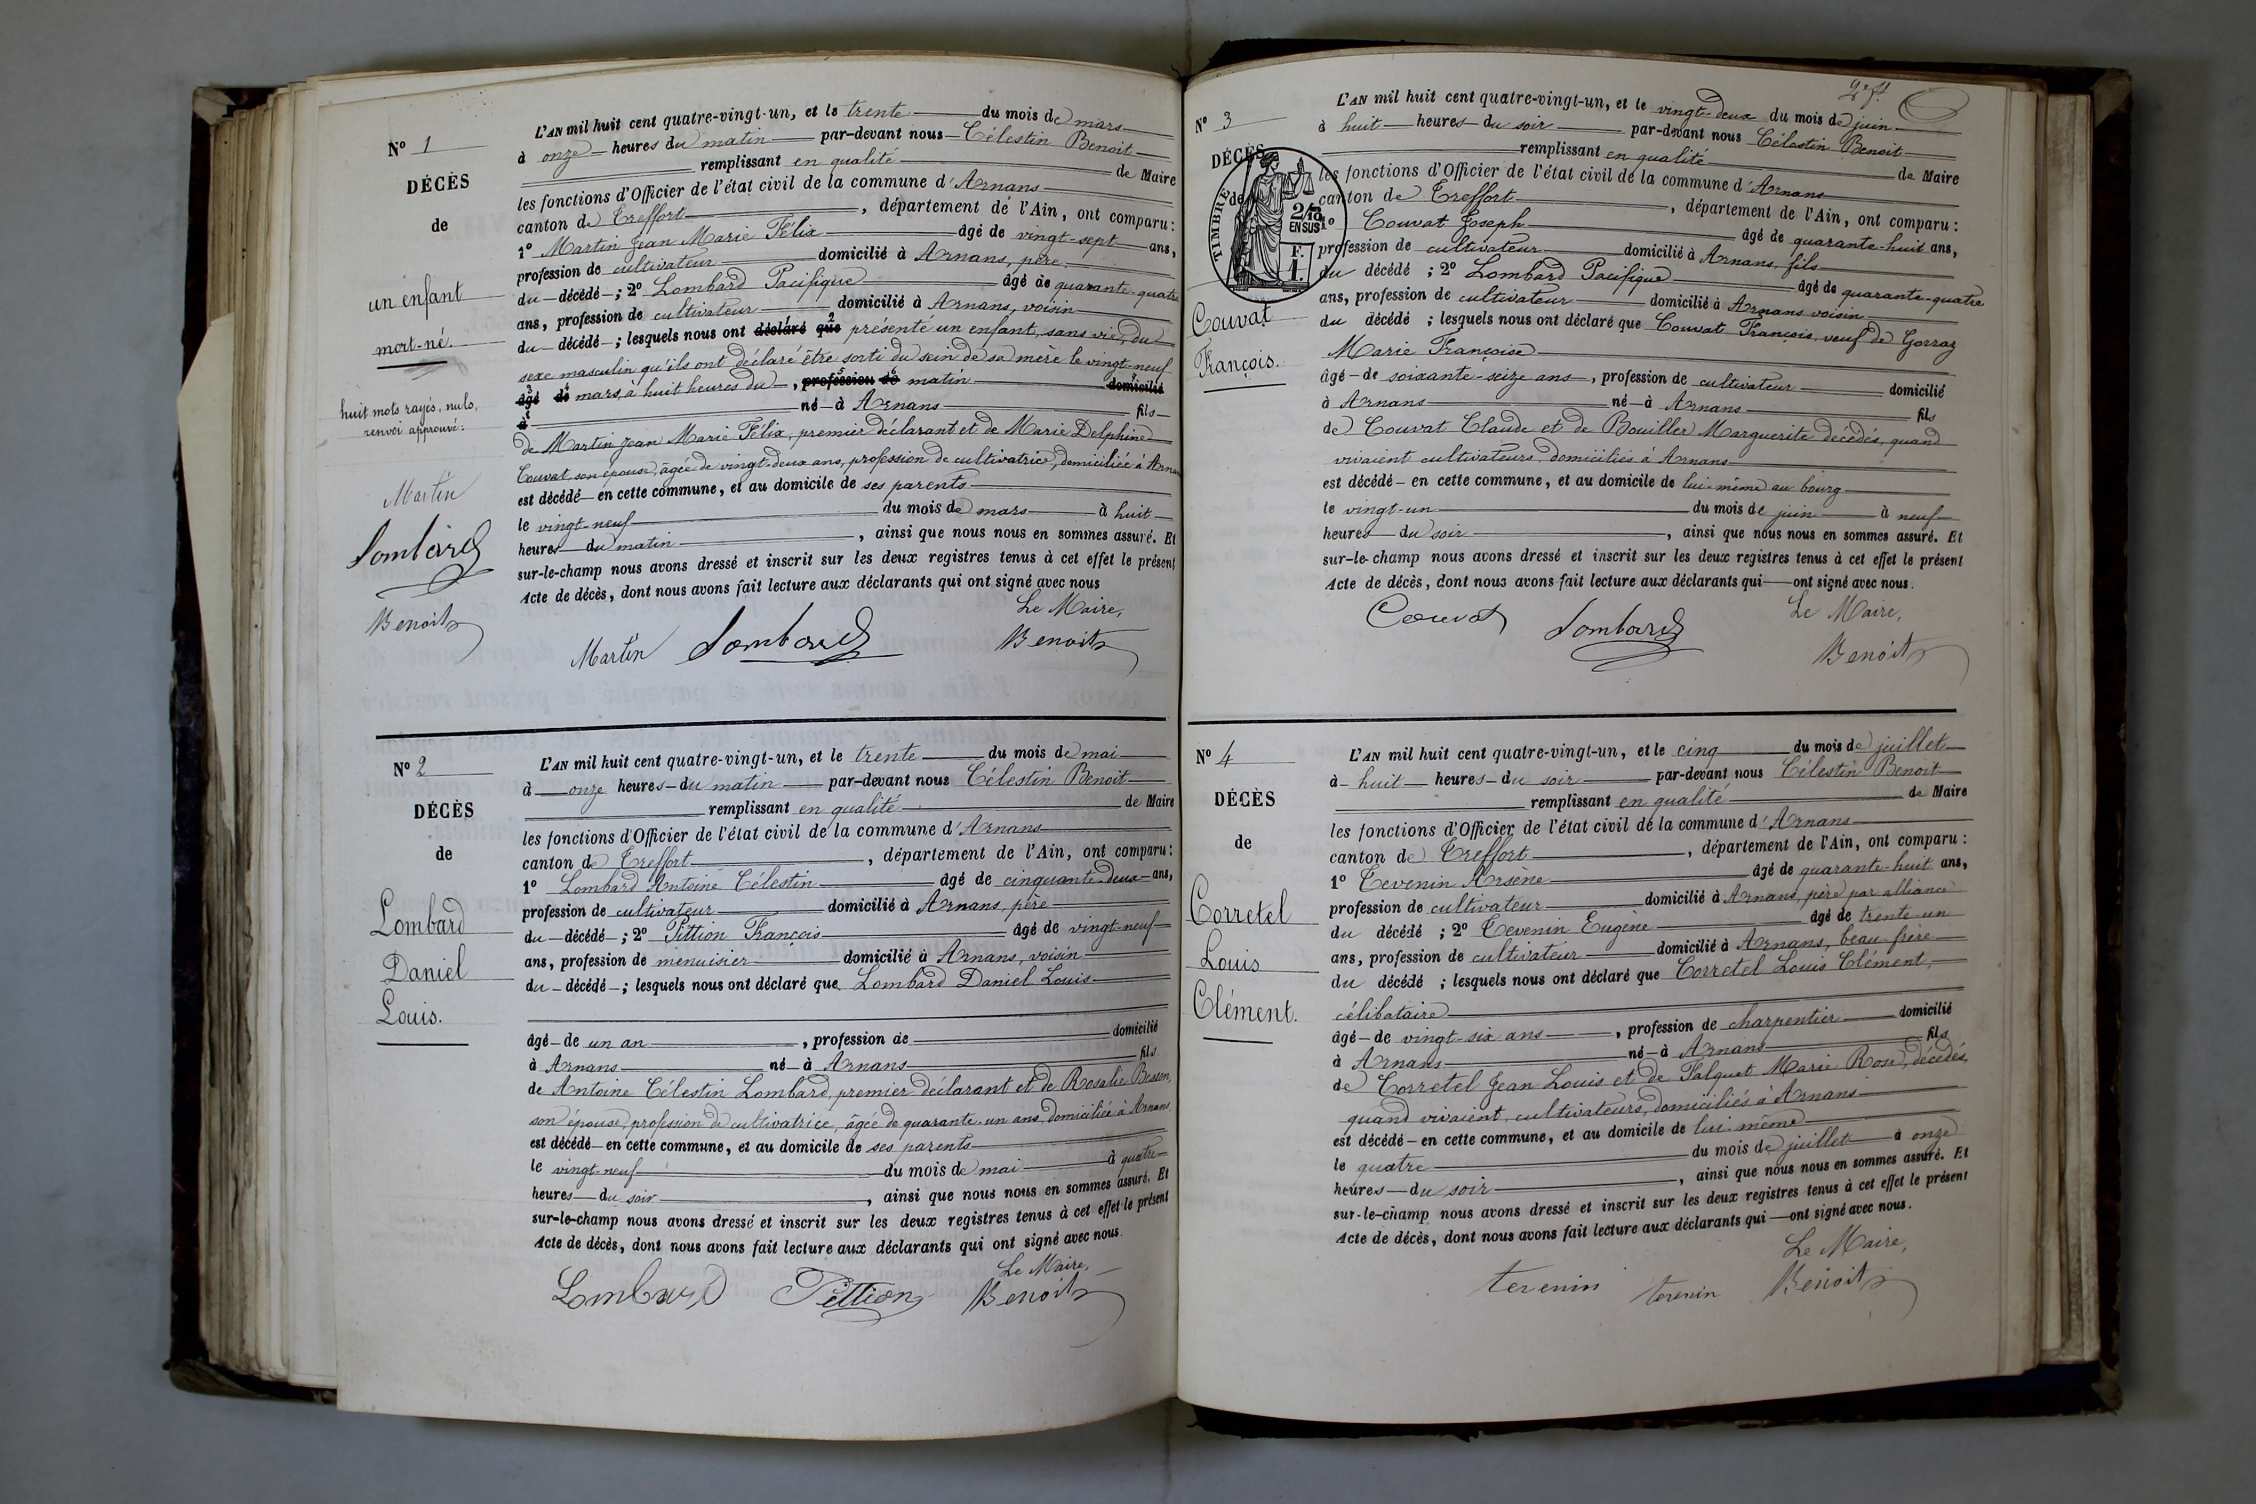 N° 1
DÉCÈS
de
un enfant
mort-né.
huit mots rayés, nuls,
renvoi approuvé:
Martin
Lombard
Benoit
L'AN mil huit cent quatre-vingt-un, et le trente du mois de mars
à onze heures du matin par-devant nous Célestin Benoit
remplissant en qualité de Maire
les fonctions d'Officier de l'état civil de la commune d'Arnans
canton de Treffort, département de l'Ain, ont comparu:
1° Martin Jean Marie Félix âgé de vingt-sept ans,
profession de cultivateur domicilié à Arnans, père
du décédé; 2° Lombard Pacifique âgé de quarante-quatre
ans, profession de cultivateur domicilié à Arnans, voisin
du décédé; lesquels nous ont déclaré que présenté un enfant, sans vie, du
sexe masculin qu'ils ont déclaré être sorti du sein de sa mère le vingt-neuf
âgé de mars, à huit heures du, profession de matin domicilié
à né à Arnans fils
de Martin Jean Marie Félix, premier déclarant et de Marie Delphine
Couvat, son épouse, âgée de vingt-deux ans, profession de cultivatrice, domiciliée à Arnans
est décédé en cette commune, et au domicile de ses parents
le vingt-neuf du mois de mars à huit
heures du matin, ainsi que nous nous en sommes assuré. Et
sur-le-champ nous avons dressé et inscrit sur les deux registres tenus à cet effet le présent
Acte de décès, dont nous avons fait lecture aux déclarants qui ont signé avec nous
Le Maire,
Martin Lombard Benoit
N° 2
DÉCÈS
de
Lombard
Daniel
Louis.
L'AN mil huit cent quatre-vingt-un, et le trente du mois de mai
à onze heures du matin par-devant nous Célestin Benoit
remplissant en qualité de Maire
les fonctions d'Officier de l'état civil de la commune d'Arnans
canton de Treffort, département de l'Ain, ont comparu:
1° Lombard Antoine Célestin âgé de cinquante-deux ans,
profession de cultivateur domicilié à Arnans, père
du décédé; 2° Pittion François âgé de vingt-neuf
ans, profession de menuisier domicilié à Arnans, voisin
du décédé; lesquels nous ont déclaré que Lombard Daniel Louis
âgé de un an, profession de domicilié
à Arnans né à Arnans fils
de Antoine Célestin Lombard, premier déclarant et de Rosalie Besson,
son épouse, profession de cultivatrice, âgée de quarante-un ans, domiciliée à Arnans
est décédé en cette commune, et au domicile de ses parents
le vingt-neuf du mois de mai à quatre
heures du soir, ainsi que nous nous en sommes assuré. Et
sur-le-champ nous avons dressé et inscrit sur les deux registres tenus à cet effet le présent
Acte de décès, dont nous avons fait lecture aux déclarants qui ont signé avec nous.
Le Maire,
Lombard Pittion Benoit
N° 3
DÉCÈS
de
TIMBRE
2/10
EN SUS
F.
1.
Couvat
François.
L'AN mil huit cent quatre-vingt-un, et le vingt-deux du mois de juin
à huit heures du soir par-devant nous Célestin Benoit
remplissant en qualité de Maire
les fonctions d'Officier de l'état civil de la commune d'Arnans
canton de Treffort, département de l'Ain, ont comparu:
1° Couvat Joseph âgé de quarante-huit ans,
profession de cultivateur domicilié à Arnans, fils
du décédé; 2° Lombard Pacifique âgé de quarante-quatre
ans, profession de cultivateur domicilié à Arnans voisin
du décédé; lesquels nous ont déclaré que Couvat François, veuf de Gorraz
Marie Françoise
âgé de soixante-seize ans, profession de cultivateur domicilié
à Arnans né à Arnans fils
de Couvat Claude et de Bouiller Marguerite décédés, quand
vivaient cultivateurs domiciliés à Arnans
est décédé en cette commune, et au domicile de lui-même au bourg
le vingt-un du mois de juin à neuf
heures du soir, ainsi que nous nous en sommes assuré. Et
sur-le-champ nous avons dressé et inscrit sur les deux registres tenus à cet effet le présent
Acte de décès, dont nous avons fait lecture aux déclarants qui ont signé avec nous.
Le Maire,
Couvat Lombard Benoit
N° 4
DÉCÈS
de
Corretel
Louis
Clément.
L'AN mil huit cent quatre-vingt-un, et le cinq du mois de juillet
à huit heures du soir par-devant nous Célestin Benoit
remplissant en qualité de Maire
les fonctions d'Officier de l'état civil de la commune d'Arnans
canton de Treffort, département de l'Ain, ont comparu:
1° Tevenin Arsène âgé de quarante-huit ans,
profession de cultivateur domicilié à Arnans, père par alliance
du décédé; 2° Tevenin Eugène âgé de trente-un
ans, profession de cultivateur domicilié à Arnans, beau-frère
du décédé; lesquels nous ont déclaré que Corretel Louis Clément,
célibataire
âgé de vingt-six ans, profession de charpentier domicilié
à Arnans né à Arnans fils
de Corretel Jean Louis et de Falquet Marie Rose, décédés,
quand vivaient, cultivateurs, domiciliés à Arnans
est décédé en cette commune, et au domicile de lui-même
le quatre du mois de juillet à onze
heures du soir, ainsi que nous nous en sommes assuré. Et
sur-le-champ nous avons dressé et inscrit sur les deux registres tenus à cet effet le présent
Acte de décès, dont nous avons fait lecture aux déclarants qui ont signé avec nous.
Le Maire,
tevenin tevenin Benoit